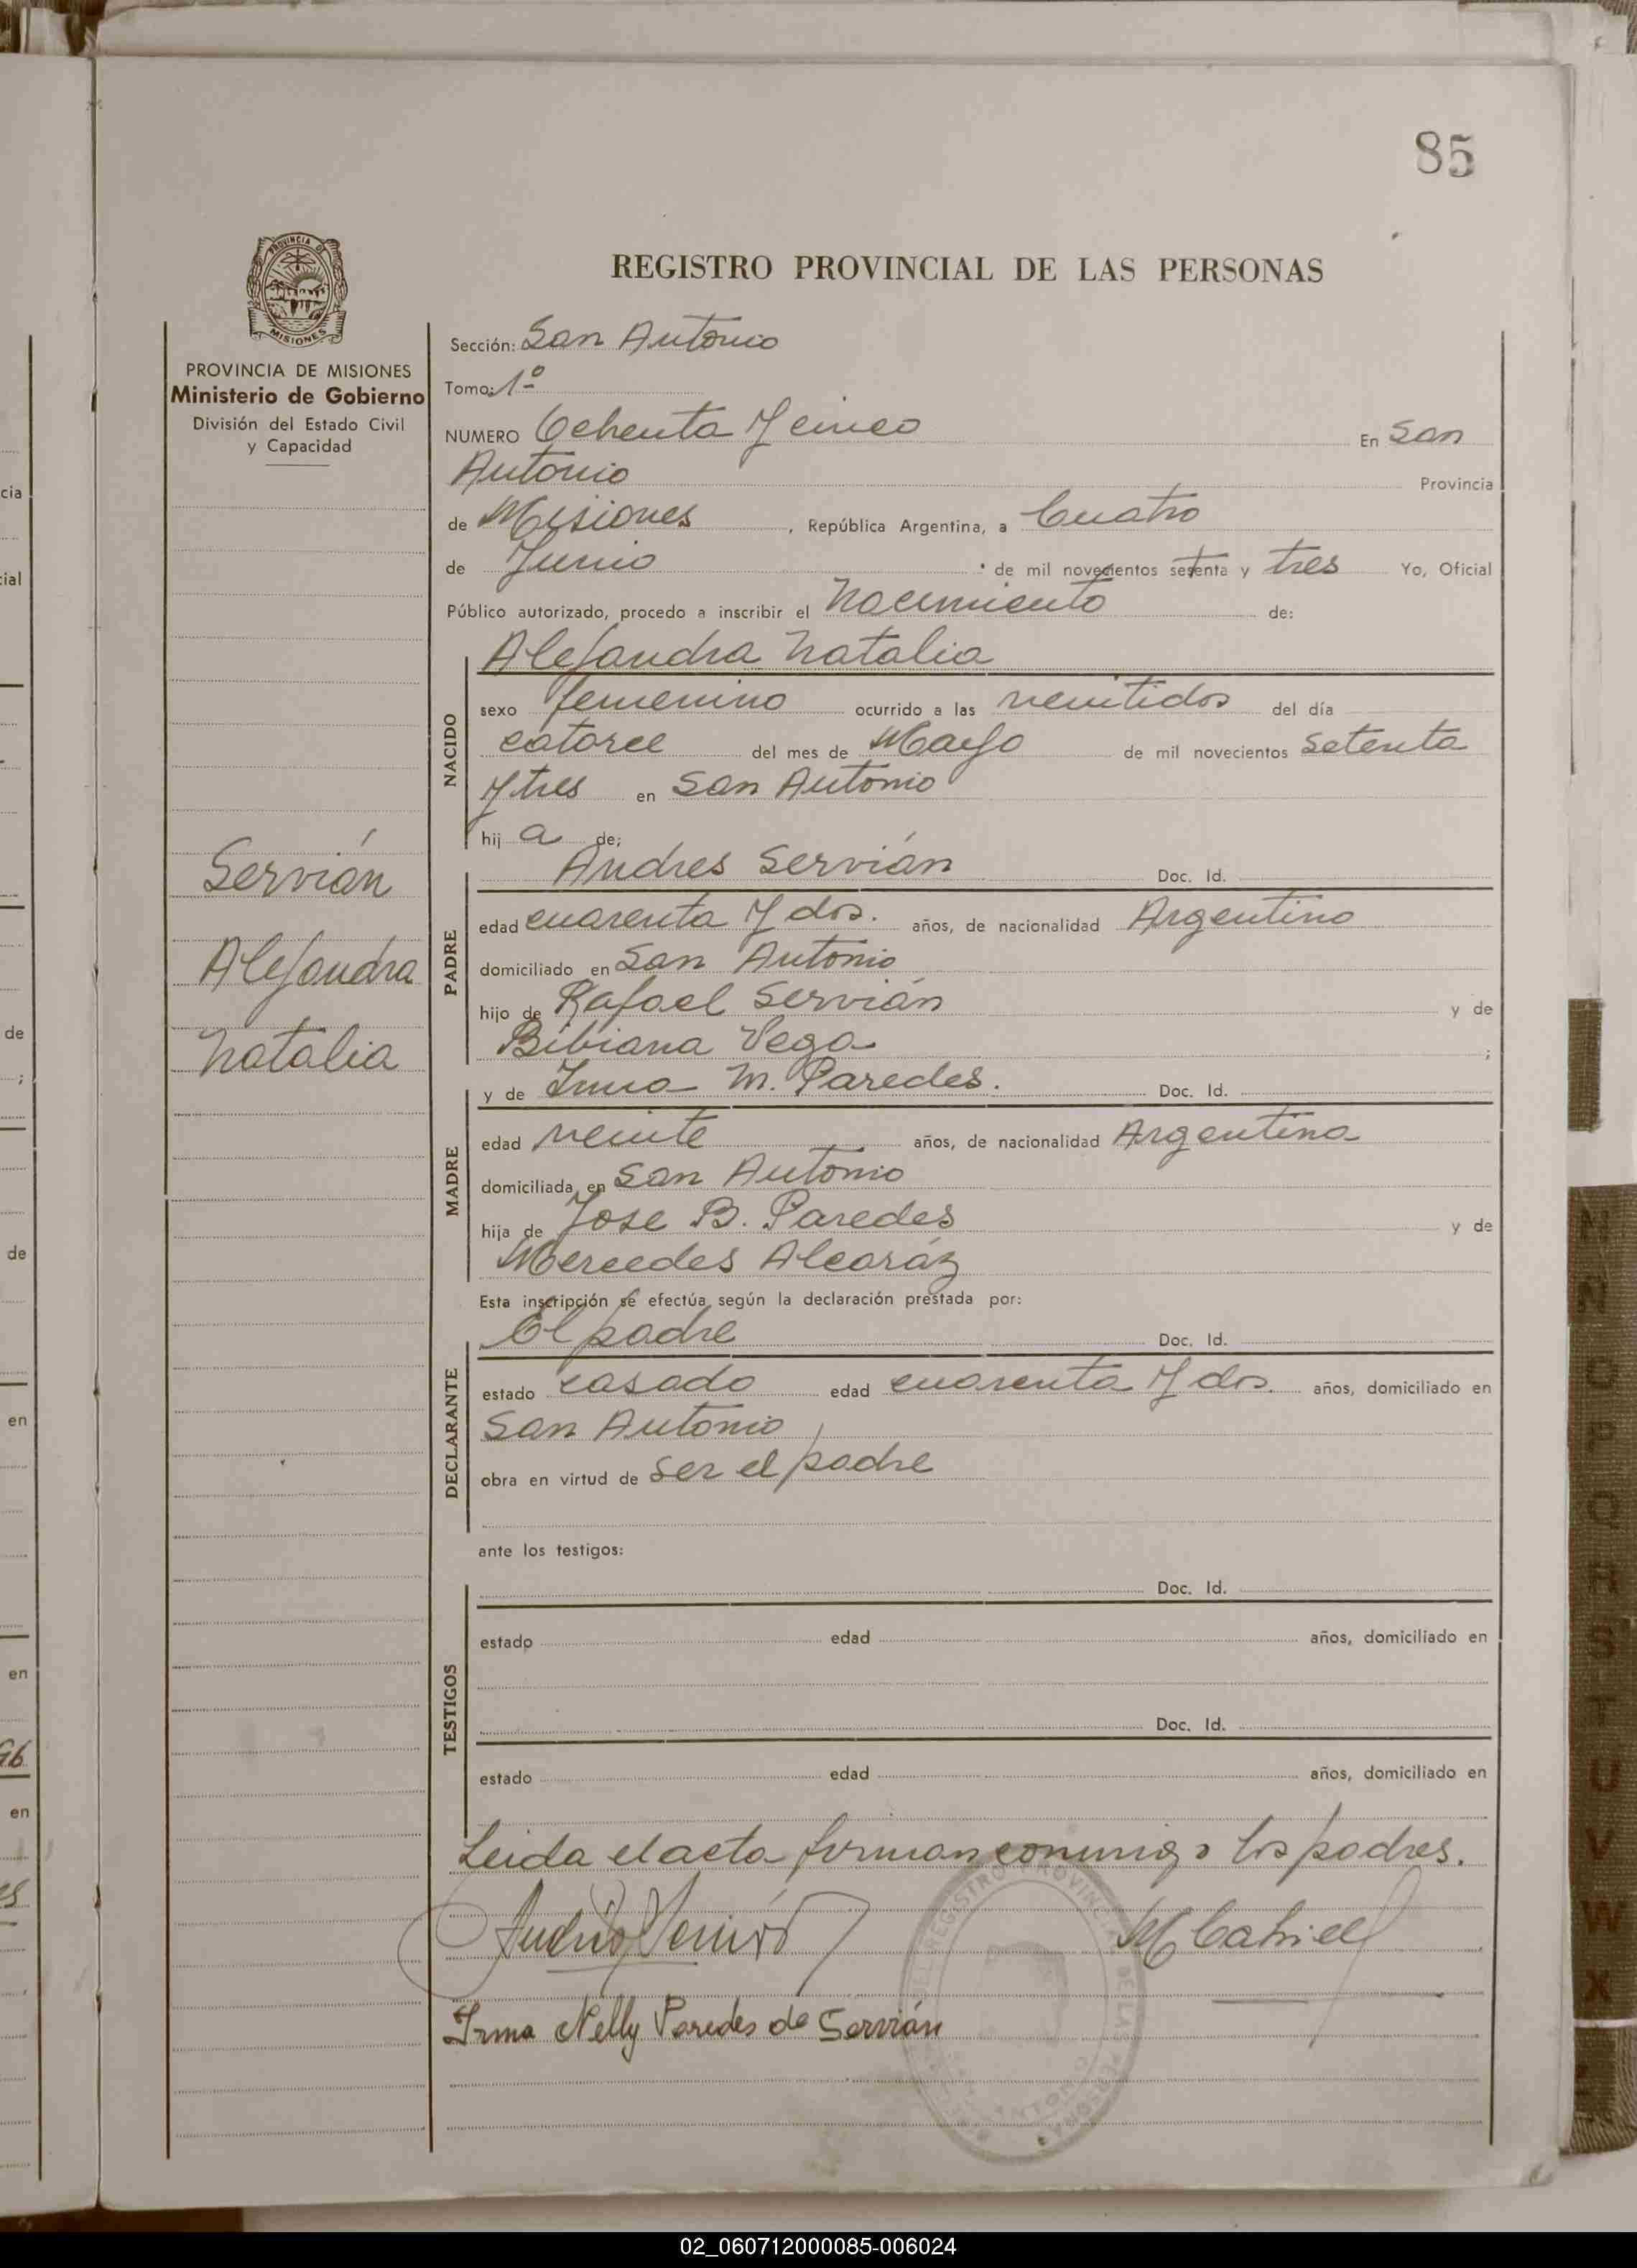 85
PROVINCIA DE
MISIONES
PROVINCIA DE MISIONES
Ministerio de Gobierno
División del Estado Civil
y Capacidad
Servián
Alejandra
Natalia
REGISTRO PROVINCIAL DE LAS PERSONAS
Sección: San Antonio
Tomo: 1º
NUMERO Ochenta y cinco En San
Antonio Provincia
de Misiones , República Argentina, a Cuatro
de Junio de mil novecientos setenta y tres Yo, Oficial
Público autorizado, procedo a inscribir el Nacimiento de:
NACIDO
Alejandra Natalia
sexo femenino ocurrido a las veintidos del día
catorce del mes de Mayo de mil novecientos setenta
y tres en San Antonio
hij a de;
PADRE
Andres Servián Doc. Id.
edad cuarenta y dos. años, de nacionalidad Argentino
domiciliado en San Antonio
hijo de Rafael Servián y de
Bibiana Vega ;
y de Irma M. Paredes. Doc. Id.
MADRE
edad veinte años, de nacionalidad Argentina
domiciliada en San Antonio
hija de Jose B. Paredes y de
Mercedes Alcaráz
Esta inscripción se efectúa según la declaración prestada por:
El padre Doc. Id.
DECLARANTE
estado casado edad cuarenta y dos. años, domiciliado en
San Antonio
obra en virtud de ser el padre
ante los testigos:
Doc. Id.
TESTIGOS
estado edad años, domiciliado en
Doc. Id.
estado edad años, domiciliado en
Leida el acta firman conmigo los padres.
Irma Nelly Paredes de Servián
cia
cial
de
;
de
en
en
en
N
O
P
Q
R
S
T
U
V
W
X
02_060712000085-006024